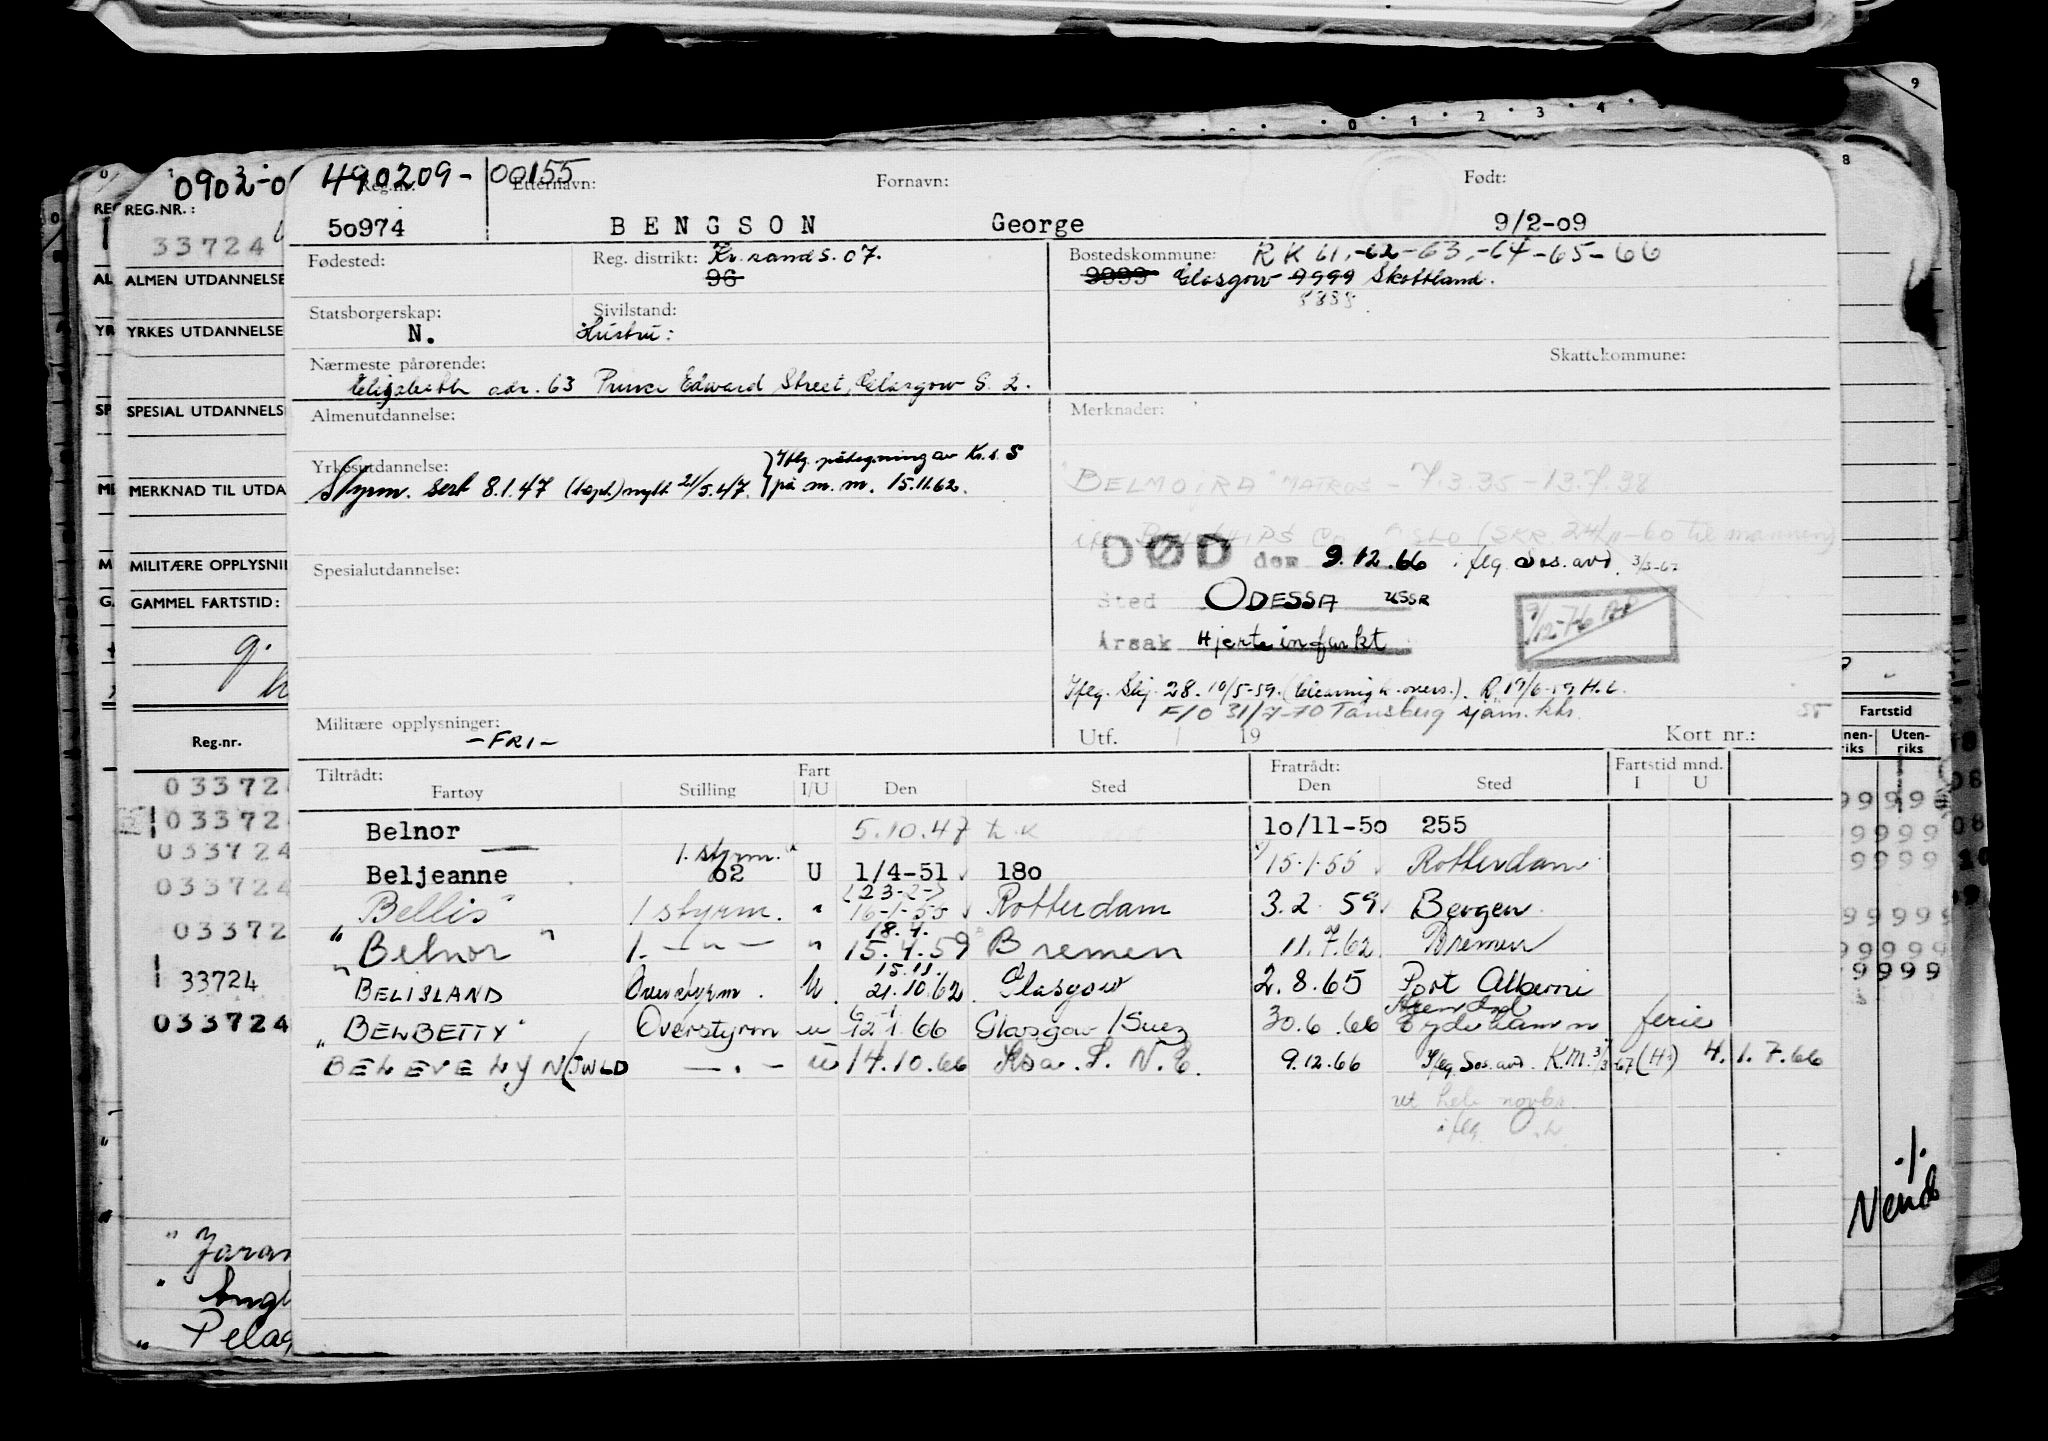 490209-00155
Reg.nr. Etternavn: Fornavn: Født:
50974 BENGSON George 9/2-09
Fødested: Reg. distrikt: Kr.sand S. 07. Bostedskommune: RK 61,-62-63,-64-65-66
96 9999 Glasgow 9999 Skottland.
Statsborgerskap: Sivilstand:
N. Hustru:
Nærmeste pårørende: Skattekommune:
Elizabeth adr. 63 Prince Edward Street, Glasgow S. 2.
Almenutdannelse: Merknader:
Iflg. påtegning av Kr. S
Yrkesutdannelse:
Styrm. sert 8.1.47 nytt 21/5.47. på m.m. 15.11.62.
"BELMOIRA" MATROS - 7.3.35 - 13.7.38
DØD den 9.12.66 i flg. Sos. avd. 3/3-67
Spesialutdannelse:
Sted ODESSA USSR
9/12-76
Årsak Hjerteinfarkt
Iflg. Skj. 28. 10/5-59. R. 19/6-59 H.L.
F/O 31/7-70 Tønsberg sjøm. ktr.
Militære opplysninger: -FRI-
Utf. 19 Kort nr.:
Tiltrådt: Fart Fratrådt: Fartstid mnd.
Fartøy Stilling I/U Den Sted Den Sted I U
Belnor 5.10.47 10/11-50 255
1. styrm.
Beljeanne 02 U 1/4-51 180 15.1.55 Rotterdam
(23-2-)
Bellis" 1 styrm. " 16-1-55 Rotterdam 3.2.59 Bergen
18.4.
"Belnor" 1. -"- " 15.4.59 Bremen 11.7.62 Bremen
15.11.
"BELISLAND Overstyrm. U 21.10.62 Glasgow 2.8.65 Port Alberni
Arendal
"BELBETTY" Overstyrm u 12.1.66 Glasgow/Suez 30.6.66 Eydehamn ferie
BELEVELYN (JWLD -.- u 14.10.66 9.12.66 Iflg. Sos. avd. K.M. 3/3-67 (H) 4. 1.7.66
0902-0
REG.NR.:
33724
ALMEN UTDANNELSE
YRKES UTDANNELSE
SPESIAL UTDANNELS
MERKNAD TIL UTDA
MILITÆRE OPPLYSNI
GAMMEL FARTSTID:
Reg.nr.
03372
03372
033724
033724
03372
33724
033724
"Pelag
0 1 2 3 4
9
8
Fartstid
Uten-
riks
./.
Vend